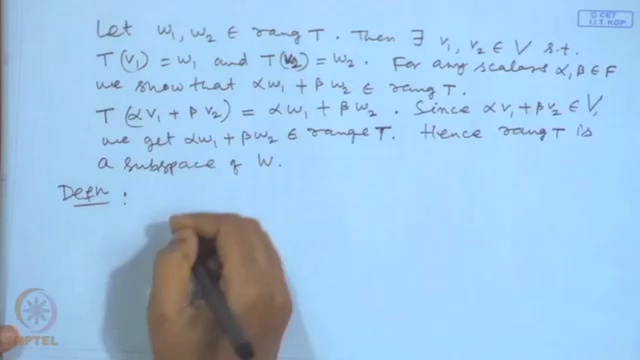 © CET
I.I.T. KGP
Let w₁, w₂ ∈ rang T. Then ∃ v₁, v₂ ∈ V s.t.
T(v₁) = w₁ and T(v₂) = w₂. For any scalars α, β ∈ F
we show that α w₁ + β w₂ ∈ rang T.
T(α v₁ + β v₂) = α w₁ + β w₂. Since α v₁ + β v₂ ∈ V,
we get α w₁ + β w₂ ∈ range T. Hence rang T is
a subspace of W.
Defn :
NPTEL